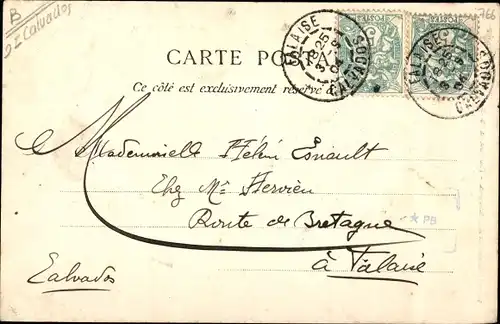 B
9 I Calvados
766
CARTE POSTALE
Ce côté est exclusivement réservé à
FALAISE
3 E 25
CALVADOS
FALAISE
CALVADOS
POSTES
Mademoiselle Hélène Esnault
Chez Me Hervieu
Route de Bretagne
à Falaise
Calvados
★ PB